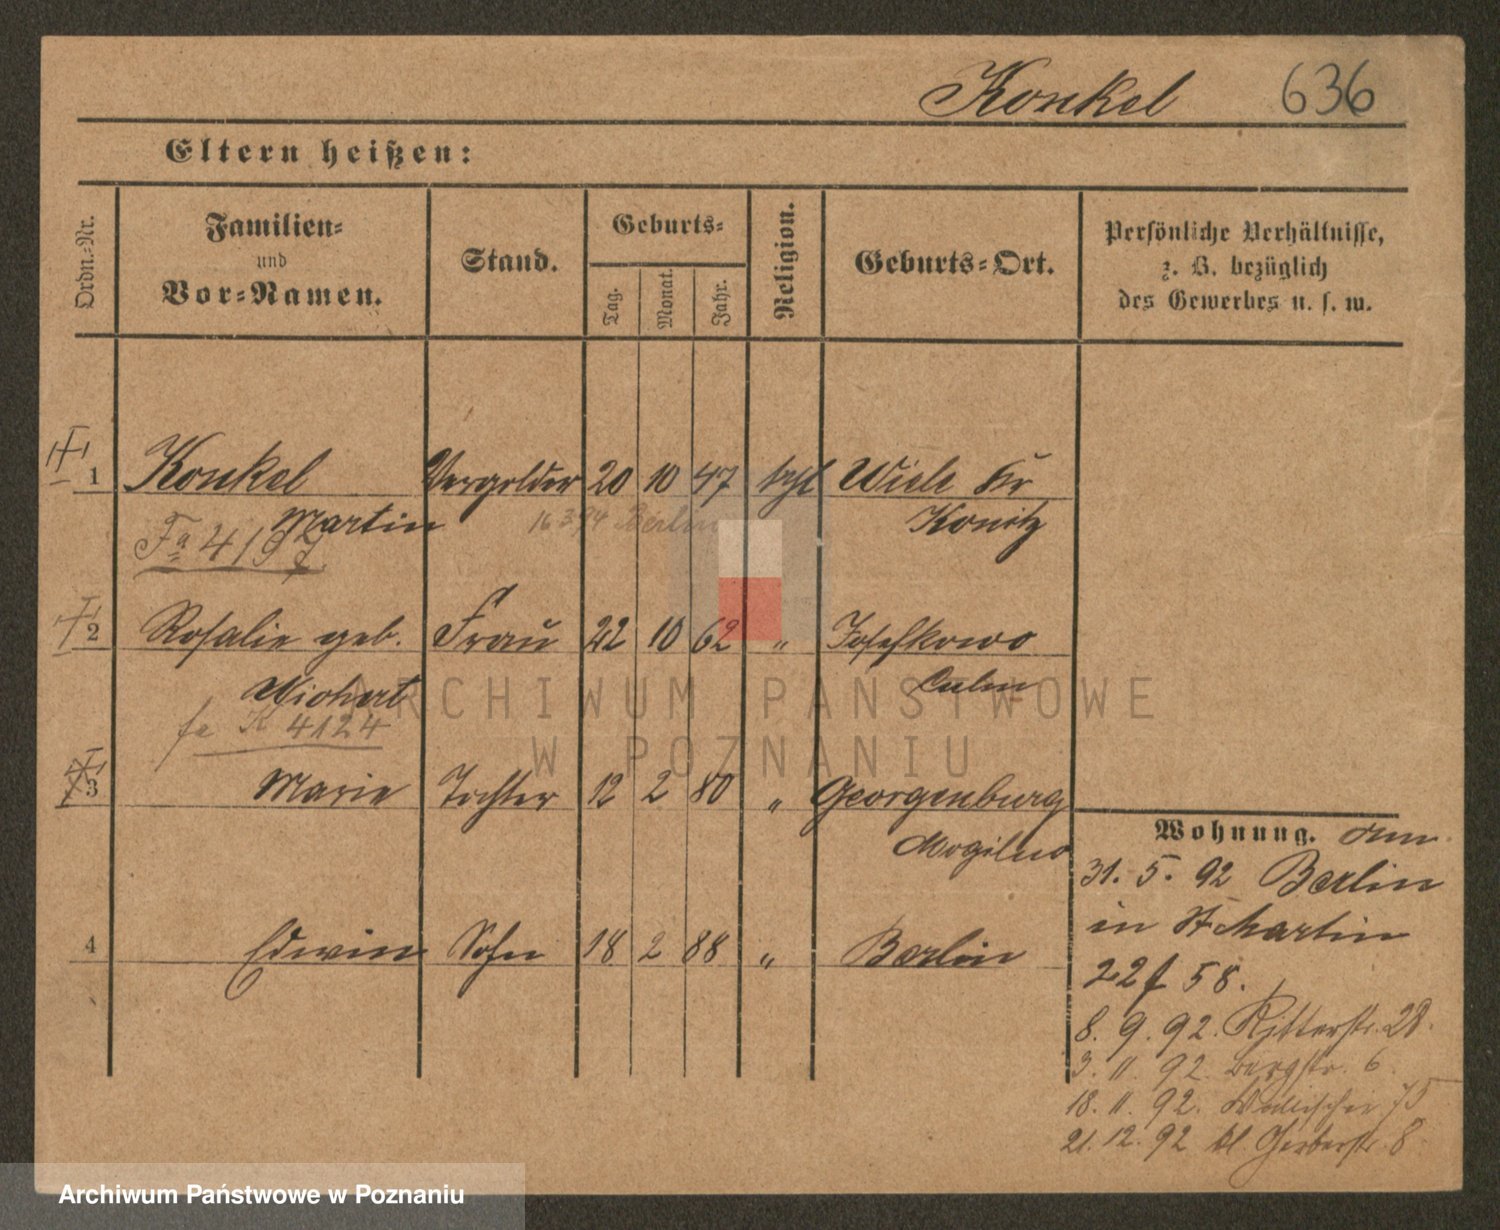 Konkel 636
Eltern heißen:
Ordn.-Nr.
Familien-
und
Vor-Namen.
Stand.
Geburts-
Tag.
Monat.
Jahr.
Religion.
Geburts-Ort.
Persönliche Verhältnisse,
z. B. bezüglich
des Gewerbes u. s. w.
1 Konkel Vergolder 20 10 47 kthl Wiele Kr
Martin Konitz
Fa 4197
16 3 94 Berlin
2 Rosalie geb. Frau 22 10 62 " Josefkowo
Wichert Culm
fa K 4124
3 Marie Tochter 12 2 80 " Georgenburg
Mogilno
4 Edwin Sohn 18 2 88 " Berlin
Wohnung.
31. 5. 92 Berlin
in St Martin
22 f 58.
8. 9. 92. Ritterstr. 28.
3. 11. 92. Bergstr. 6.
18. 11. 92. Wallischei 75
21. 12. 92 kl. Gerberstr. 8
ARCHIWUM PAŃSTWOWE
W POZNANIU
Archiwum Państwowe w Poznaniu